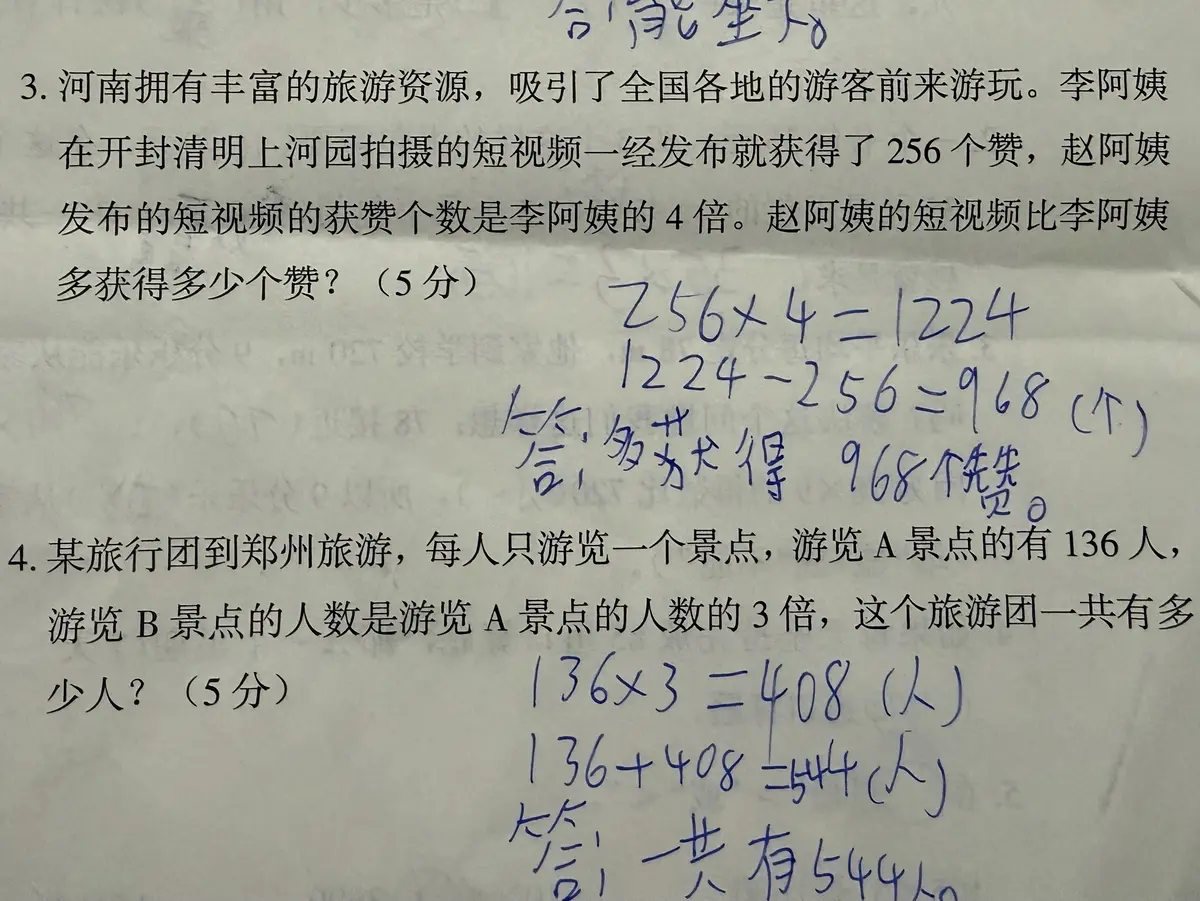 答:能坐下。
3. 河南拥有丰富的旅游资源，吸引了全国各地的游客前来游玩。李阿姨
在开封清明上河园拍摄的短视频一经发布就获得了 256 个赞，赵阿姨
发布的短视频的获赞个数是李阿姨的 4 倍。赵阿姨的短视频比李阿姨
多获得多少个赞？（5 分）
256×4=1224
1224-256=968(个)
答:多获得 968个赞。
4. 某旅行团到郑州旅游，每人只游览一个景点，游览 A 景点的有 136 人，
游览 B 景点的人数是游览 A 景点的人数的 3 倍，这个旅游团一共有多
少人？（5 分）
136×3=408(人)
136+408=544(人)
答:一共有544人。